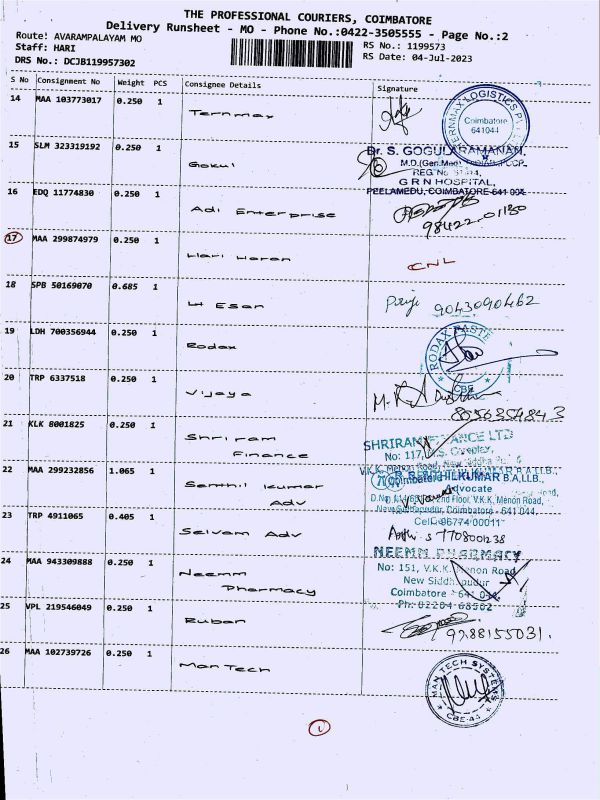 THE PROFESSIONAL COURIERS, COIMBATORE
Delivery Runsheet - MO - Phone No.:0422-3505555 - Page No.:2
Route: AVARAMPALAYAM MO
Staff: HARI
DRS No.: DCJB119957302
RS No.: 1199573
RS Date: 04-Jul-2023
S No Consignment No Weight PCS Consignee Details Signature
14 MAA 103773017 0.250 1 Ternmax
TERNMAX LOGISTICS PVT
Coimbatore
641044
15 SLM 323319192 0.250 1 Gokul
Dr. S. GOGULARAMANAN,
M.D.(Gen.Med)
G R N HOSPITAL,
PEELAMEDU, COIMBATORE-641 004.
16 EDQ 11774830 0.250 1 Adi Enterprise
98422-01130
17 MAA 299874979 0.250 1 Hari Haran CNL
18 SPB 50169070 0.685 1 Esan
Priya 9043090462
19 LDH 700356944 0.250 1 Rodax
RODAX PASTE
CBE
20 TRP 6337518 0.250 1 Vijaya
21 KLK 8001825 0.250 1 Shriram Finance
SHRIRAM FINANCE LTD
No: 117,
22 MAA 299232856 1.065 1 Senthil Kumar Adv
SENTHILKUMAR B.A,LLB.,
Advocate
2nd Floor, V.K.K. Menon Road,
Coimbatore - 641 044.
Cell: 96774 00011
23 TRP 4911065 0.405 1 Selvam Adv
7708001238
24 MAA 943309888 0.250 1 Neemm Pharmacy
NEEMM PHARMACY
No: 151, V.K.K. Menon Road
New Siddhapudur
Coimbatore - 641 044.
25 VPL 219546049 0.250 1 Ruban
9788155031.
26 MAA 102739726 0.250 1 Man Tech
MAN TECH SYSTEMS
CBE-44
1